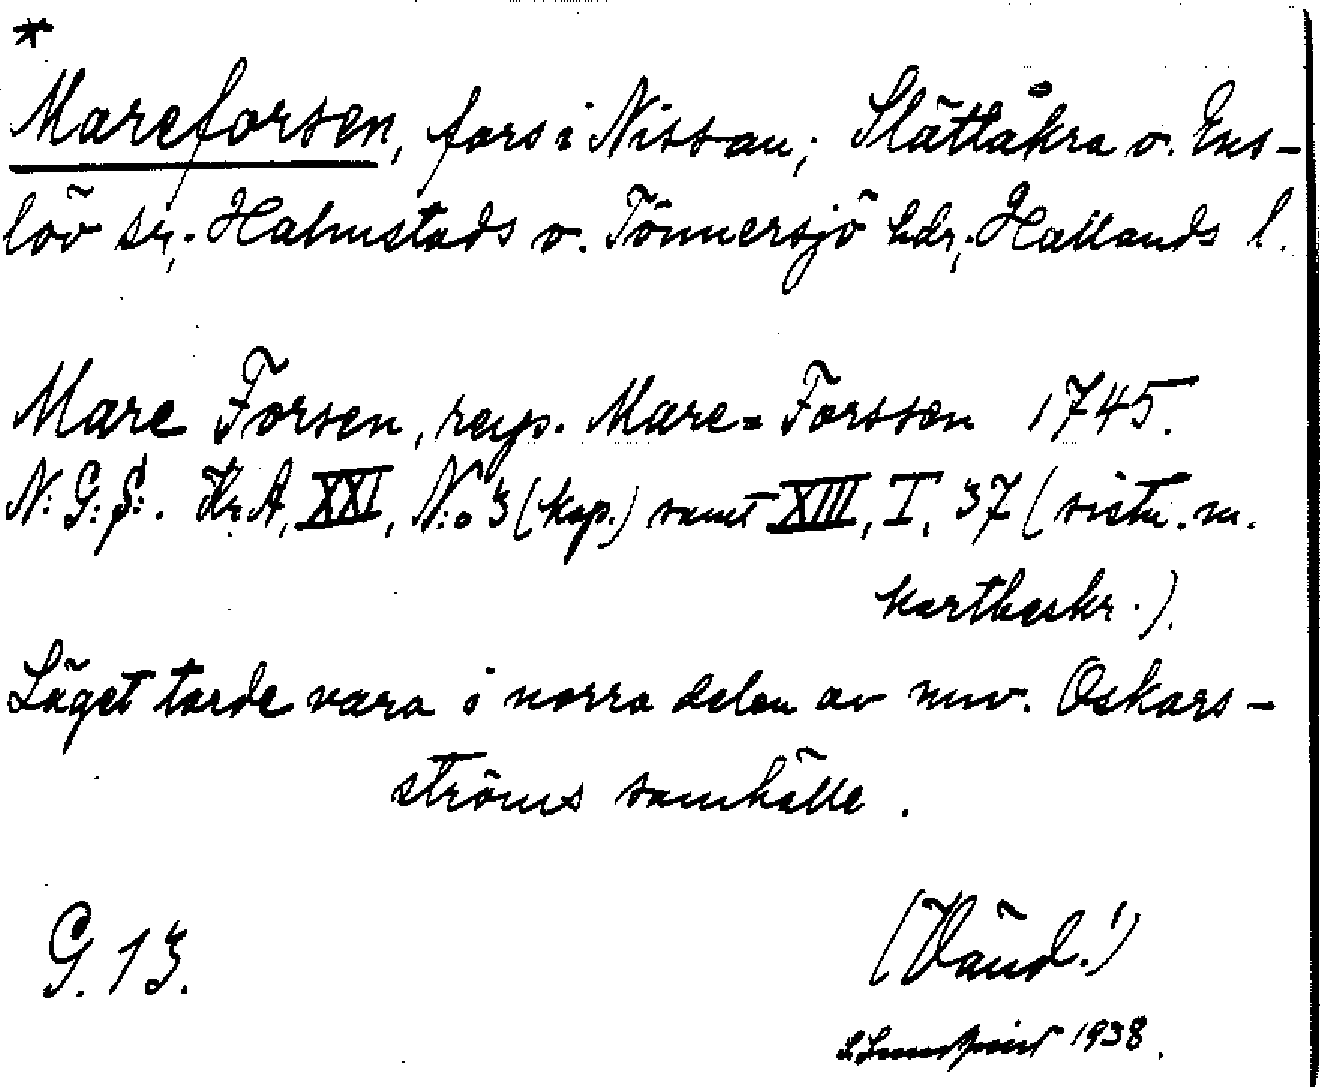 *
Mareforsen, fors i Nissan; Slättåkra o. Ens-
löv snr, Halmstads o. Tönnersjö hdr, Hallands l.
Mare Forsen, resp. Mare= Forssen 1745.
N: G: S: Kr. A. XXI, N:o 3 (kop.) samt XIII, I, 37 (sistn. m.
kartbeskr.).
Läget torde vara i norra delen av nuv. Oskars-
ströms samhälle.
G. 13.
(Vänd!)
1938.